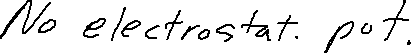 No electrostat. pot.